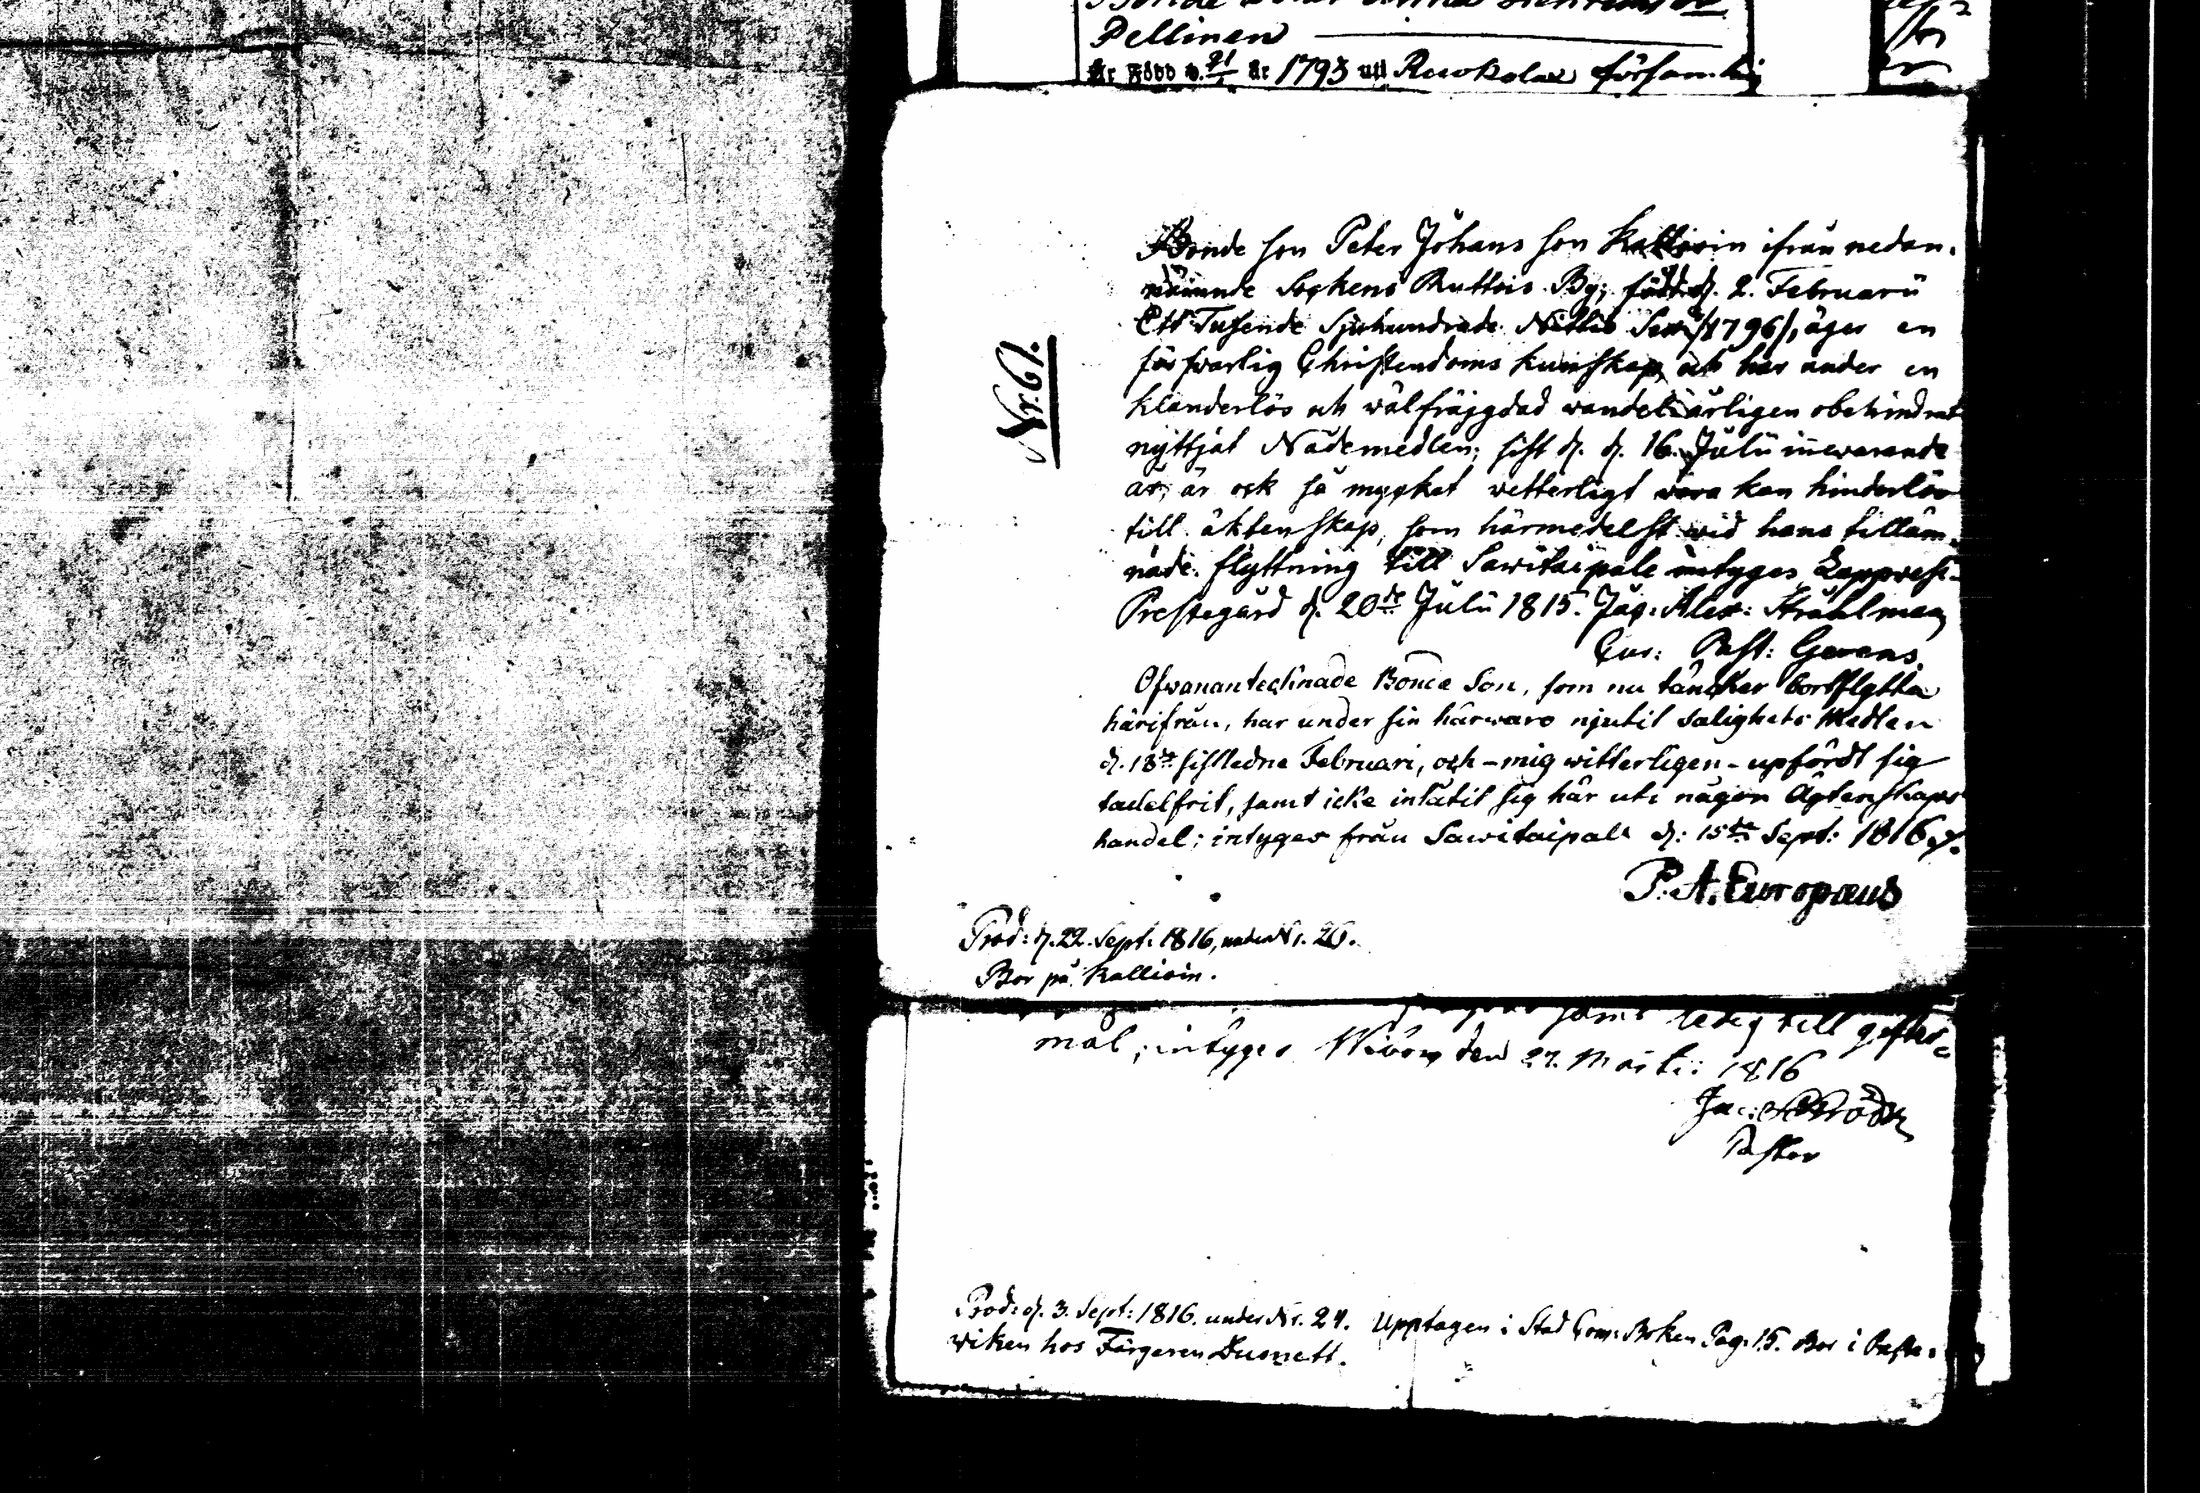 Pellinen
är född d. 21/1 år 1793 uti Ruokolax församling
Nr. 61.
Bonde son Peter Johans son Kallioin ifrån nedan-
nämnde Sockens Ruttois By; född d. 2. Februarii
Ett Tusende Sjuhundrade Nittio Sex /1796/, äger en
förswarlig Christendoms kunskap, och har under en
klanderlös och wälfräjgdad wandel årligen obehindrat
nyttjat Nådemedlen; sist d. d. 16. Julii innewarande
år; är ock så mycket wetterligt wara kan hinderlös
till äktenskap, som härmedelst wid hans tilläm-
nade flyttning till Sawitaipale intyges Lappvesi
Prestegård d. 20de Julii 1815. Jac: Alex: Stråhlman
Past:
Ofwanantecknade Bonde Son, som nu täncker bortflytta
härifrån, har under sin härwaro njutit Salighets Medlen
d. 18de sistledne Februari, och - mig witterligen - upfördt sig
tadelfrit, samt icke inlåtit sig här uti någon Ägtenskaps
handel; intyges från Sawitaipale d: 15de Sept: 1816.
P. A. Europaeus
Prod: d. 22. Sept: 1816, under Nr. 26.
Bor på Kallioin.
samt ledig till gifter=
mål; intyges Wiborg den 27. Martii 1816
Jac:
Pastor
Prod: d. 3. Sept: 1816. under Nr. 24. Upptagen i Stad Com: Boken Pag. 15. Bor i
wiken hos Färgeren Dusnett.